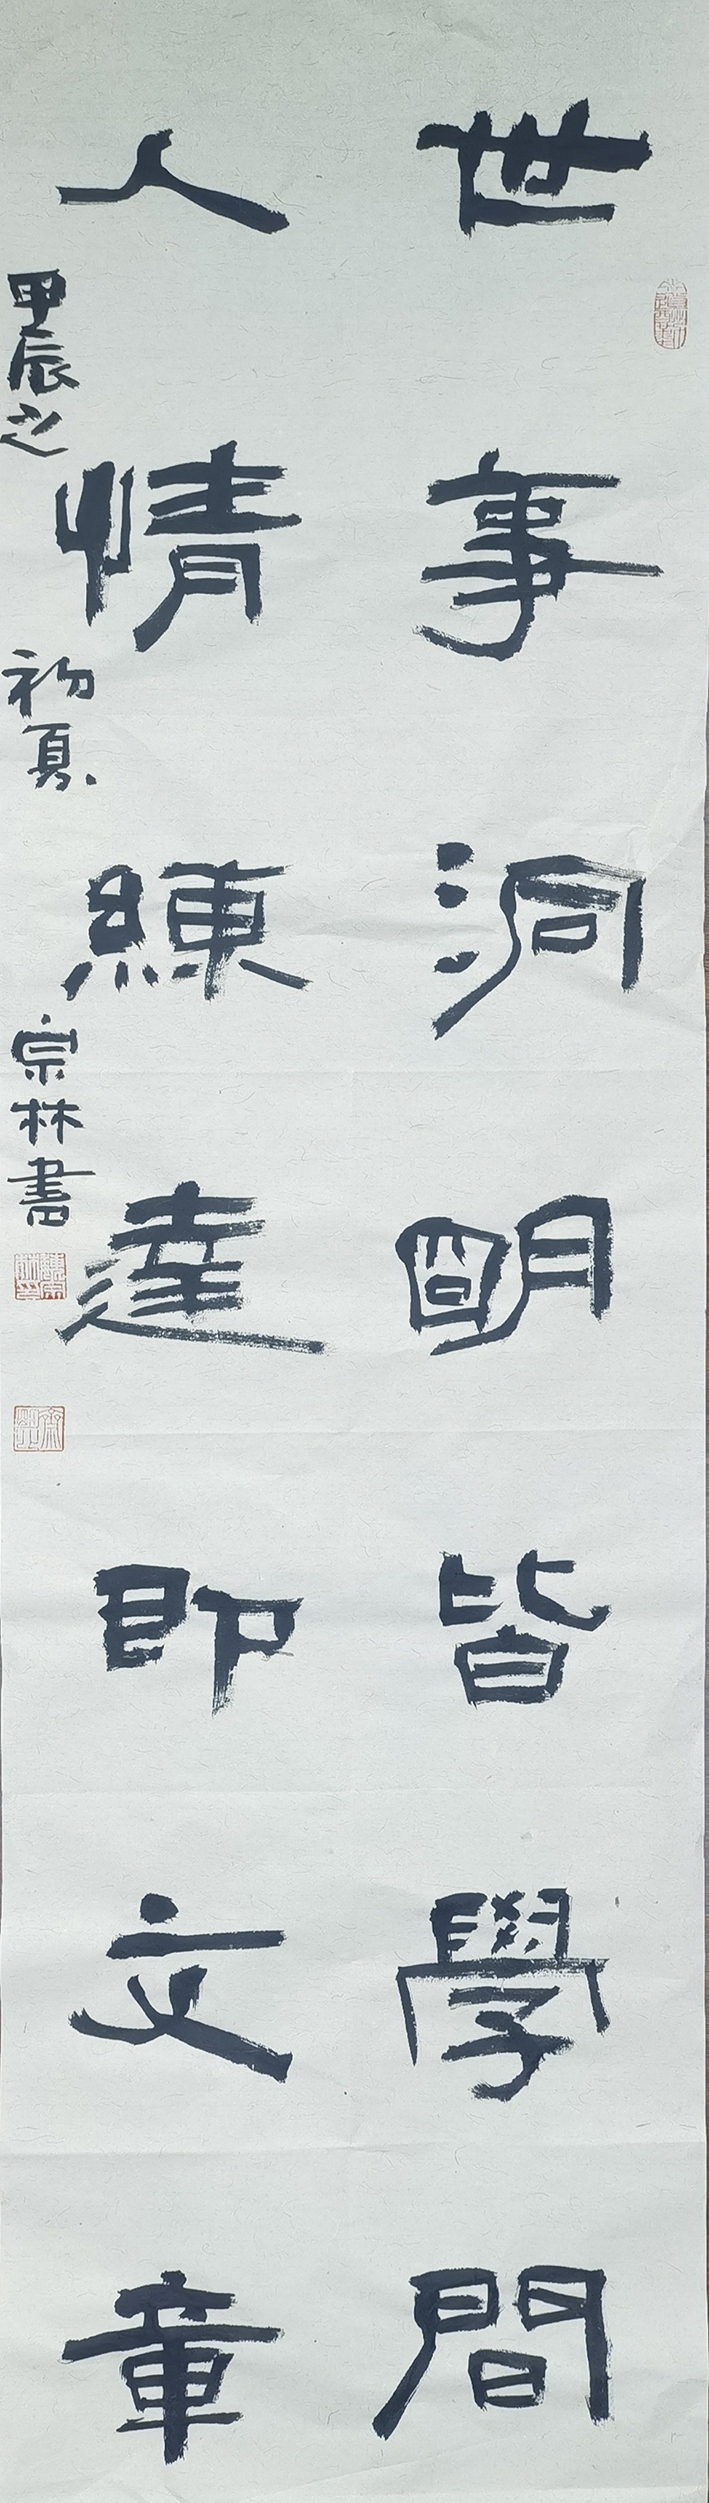 世事洞明皆學問
人情練達即文章
甲辰之初夏宗林書